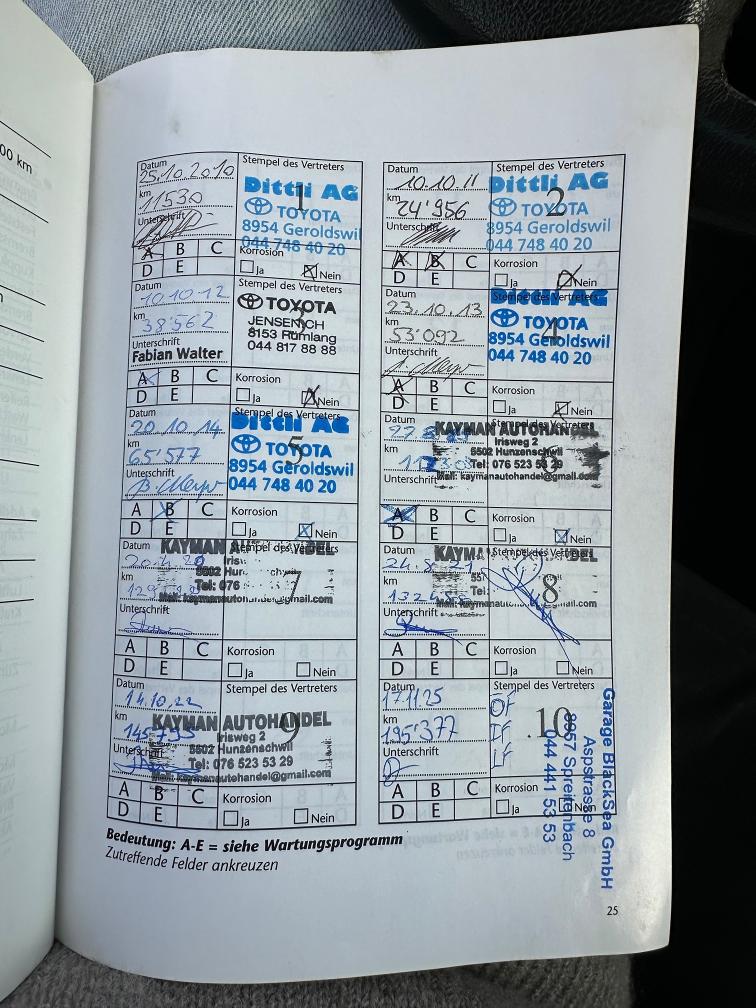 00 km
Datum
25.10.2010
km
11530
Unterschrift
Stempel des Vertreters
1
Dittli AG
TOYOTA
8954 Geroldswil
044 748 40 20
A B C
D E
Korrosion
Ja Nein
Datum
10.10.11
km
24'956
Unterschrift
Stempel des Vertreters
2
Dittli AG
TOYOTA
8954 Geroldswil
044 748 40 20
A B C
D E
Korrosion
Ja Nein
Datum
10.10.12
km
38'562
Unterschrift
Fabian Walter
3
TOYOTA
8153 Rümlang
044 817 88 88
A B C
D E
Korrosion
Ja Nein
Datum
23.10.13
km
53'092
Unterschrift
Stempel des Vertreters
4
Dittli AG
TOYOTA
8954 Geroldswil
044 748 40 20
A B C
D E
Korrosion
Ja Nein
Datum
20.10.14
km
65'577
Unterschrift
Stempel des Vertreters
5
Dittli AG
TOYOTA
8954 Geroldswil
044 748 40 20
A B C
D E
Korrosion
Ja Nein
Datum
km
Unterschrift
KAYMAN AUTOHANDEL
Irisweg 2
5502 Hunzenschwil
Tel: 076 523 53 29
Mail: kaymanautohandel@gmail.com
A B C
D E
Korrosion
Ja Nein
Datum
km
Unterschrift
Stempel des Vertreters
7
KAYMAN
5502
Tel: 076
A B C
D E
Korrosion
Ja Nein
Datum
24.8.21
km
Unterschrift
Stempel des Vertreters
8
Tel:
A B C
D E
Korrosion
Ja Nein
Datum
14.10.22
km
Unterschrift
Stempel des Vertreters
9
KAYMAN AUTOHANDEL
Irisweg 2
5502 Hunzenschwil
Tel: 076 523 53 29
Mail: kaymanautohandel@gmail.com
A B C
D E
Korrosion
Ja Nein
Datum
17.11.25
km
195'377
Unterschrift
Stempel des Vertreters
10
ÖF
IF
LF
Garage BlackSea GmbH
Aspstrasse 8
8957 Spreitenbach
044 441 53 53
A B C
D E
Korrosion
Ja Nein
Bedeutung: A-E = siehe Wartungsprogramm
Zutreffende Felder ankreuzen
25